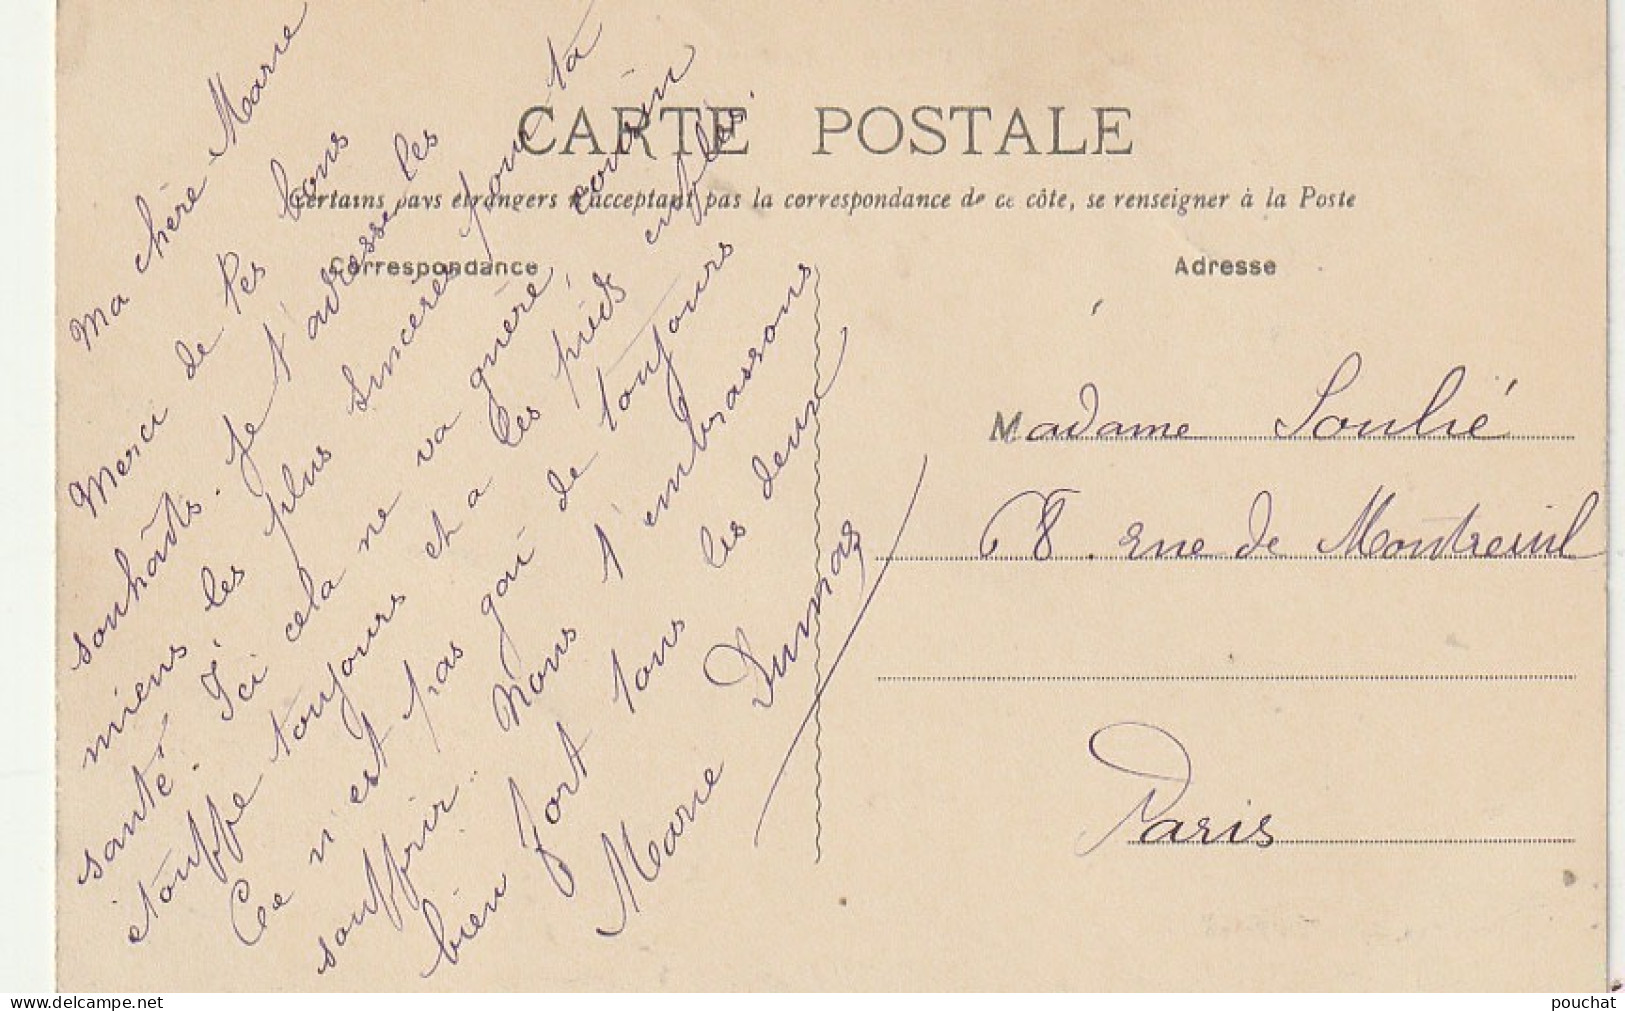 CARTE POSTALE
Certains pays étrangers n'acceptant pas la correspondance de ce côte, se renseigner à la Poste
Correspondance
Adresse
Ma chère Marie
Merci de tes bons
souhaits. Je t'adresse les
miens les plus sincères pour ta
santé. Ici cela ne va guère, cousin
étouffe toujours et a les pieds enflés.
Ce n'est pas gai de toujours
souffrir. Nous t'embrassons
bien fort tous les deux
Marie Dumas
Madame Soulié
68. rue de Montreuil
Paris
delcampe.net
pouchat